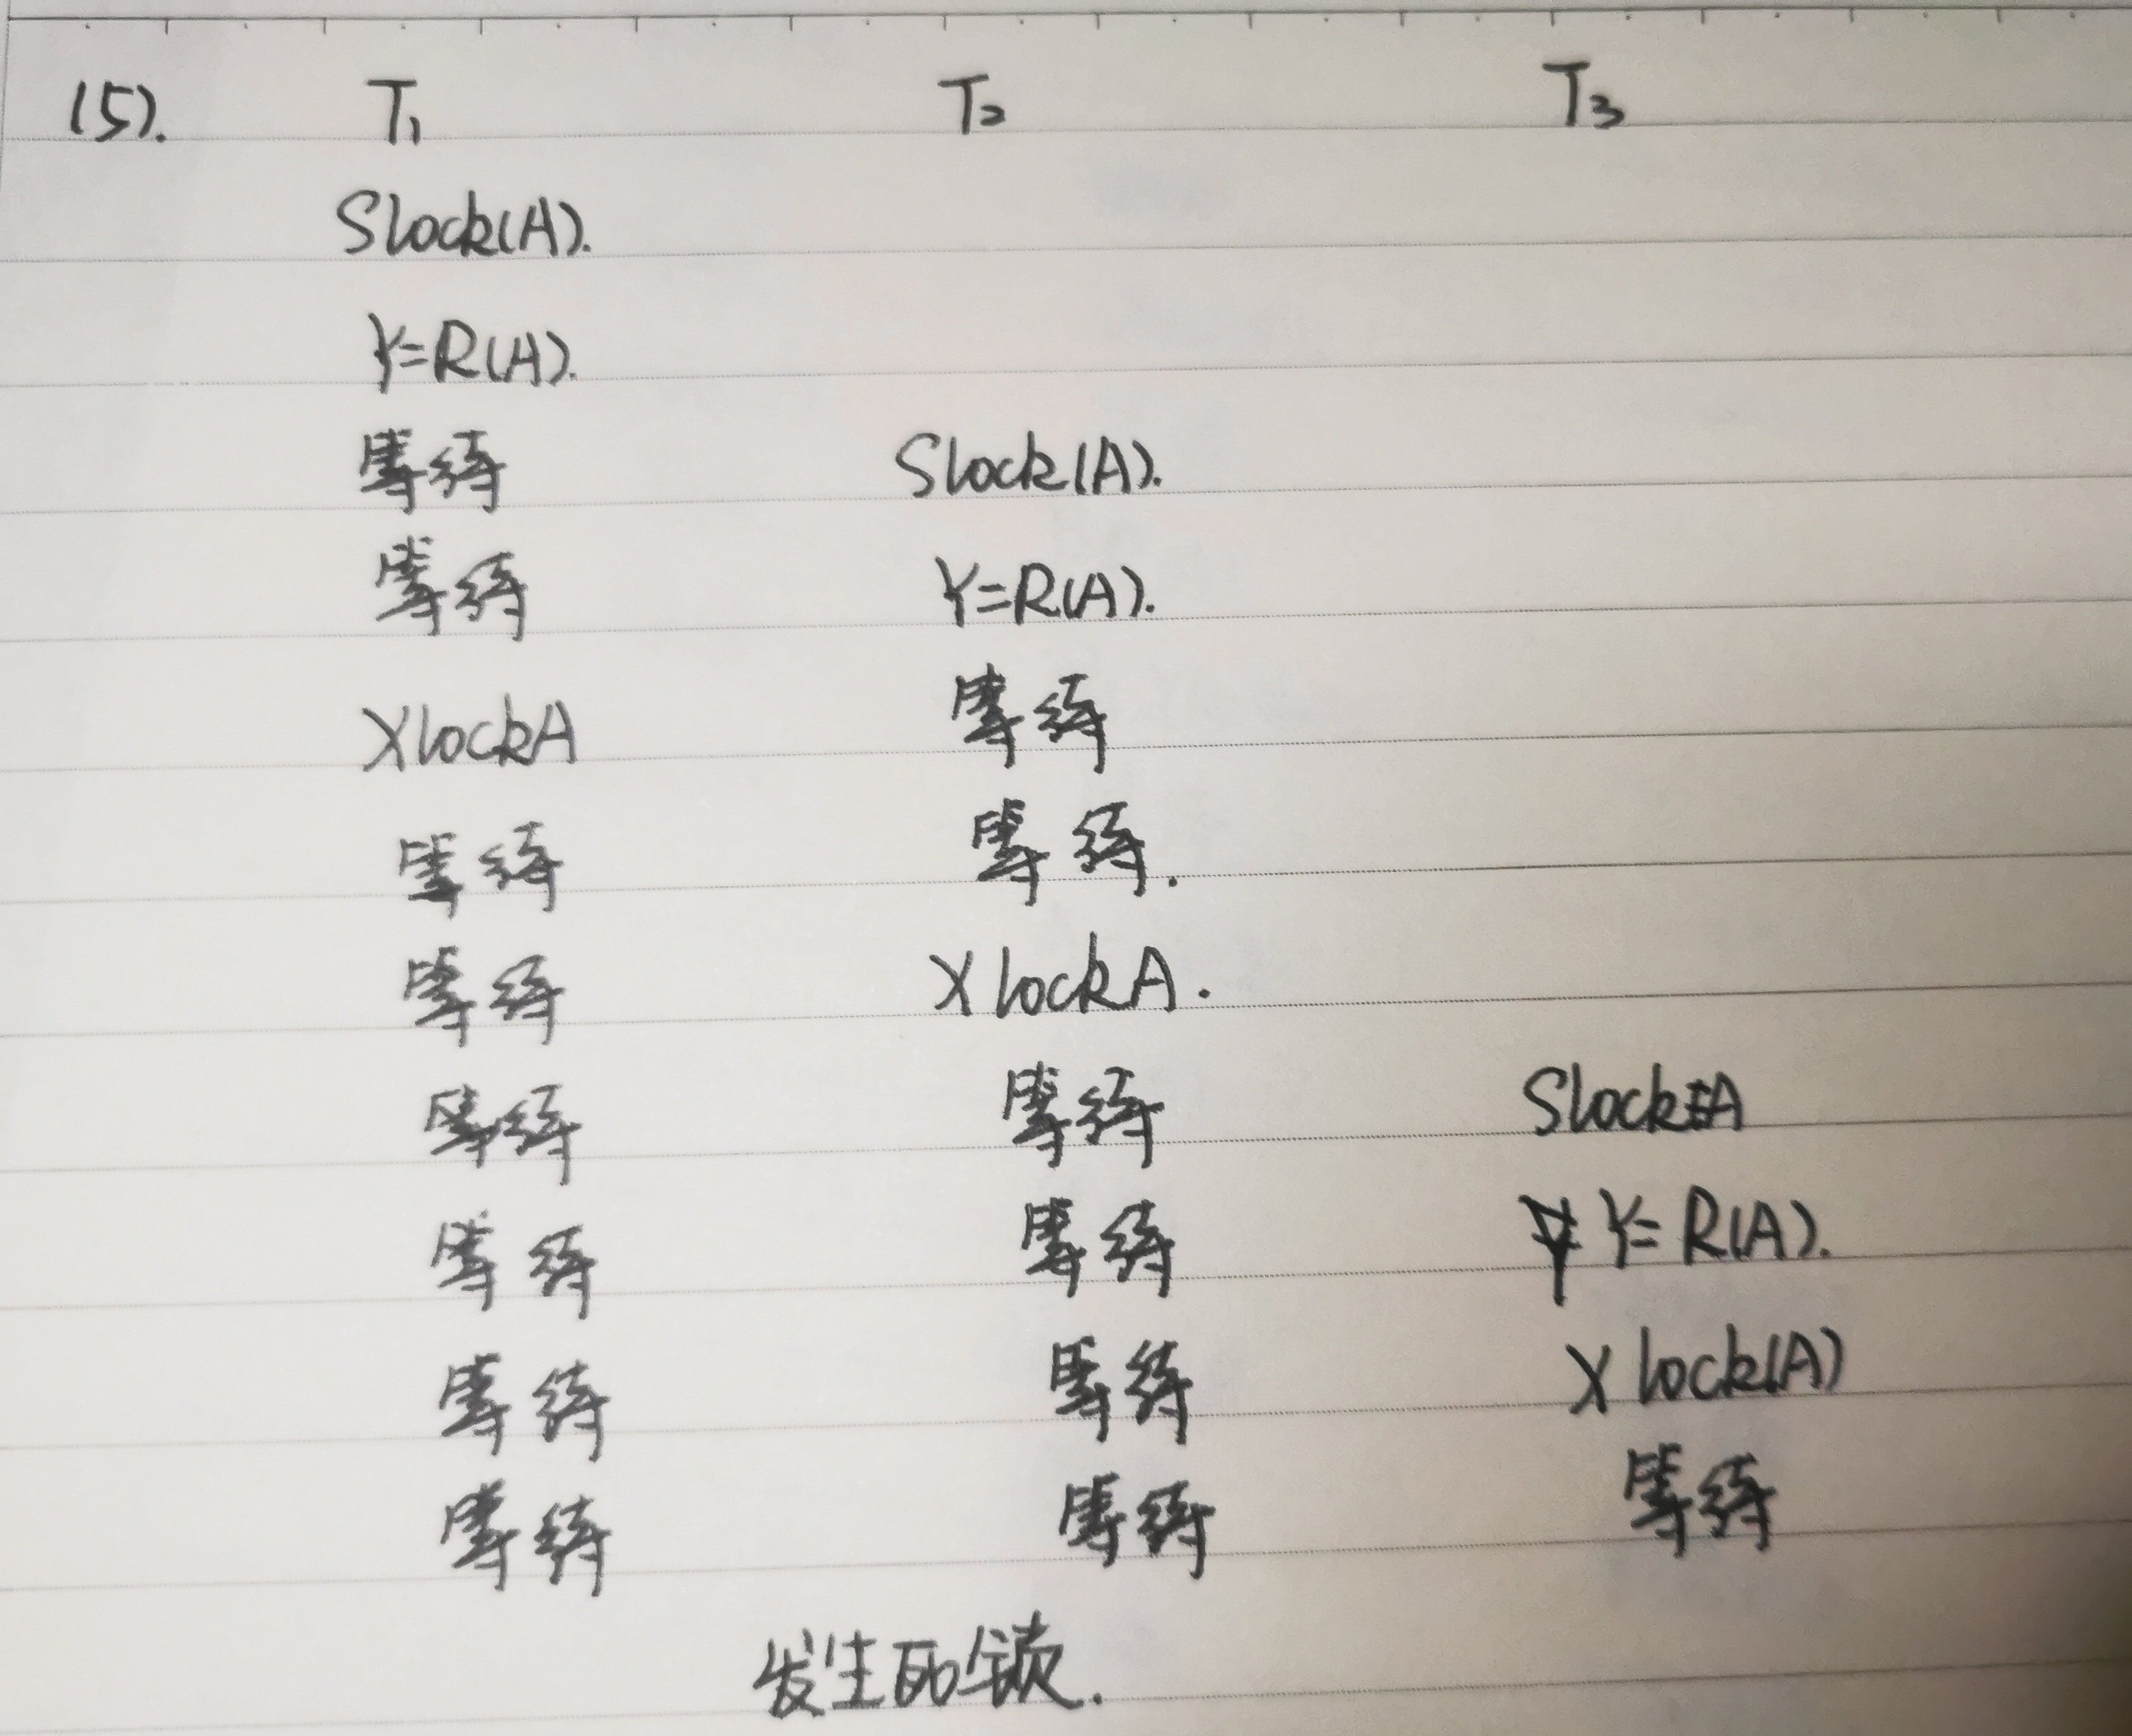 (5). T₁ T₂ T₃
Slock(A).
Y=R(A).
等待 Slock(A).
等待 Y=R(A).
XlockA 等待
等待 等待.
等待 XlockA.
等待 等待 SlockA
等待 等待 Y=R(A).
等待 等待 Xlock(A)
等待 等待 等待
发生死锁.